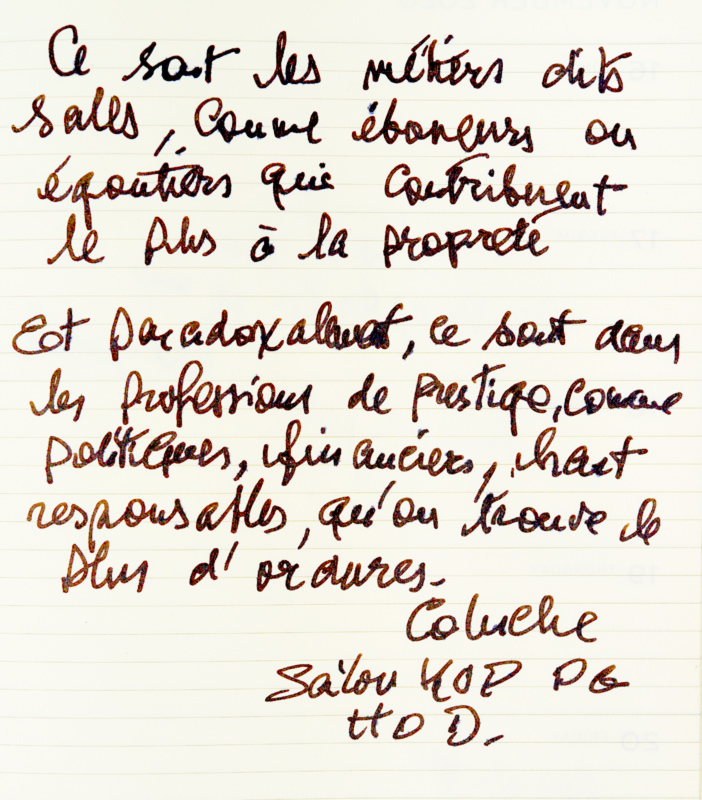 Ce sont les métiers dits
salles, comme éboneurs ou
égoutiers qui contribuent
le plus à la propreté
Est paradoxalement, ce sont dans
les professions de prestige, comme
politiques, financiers, haut
responsables, qu'on trouve le
plus d'ordures.
Coluche